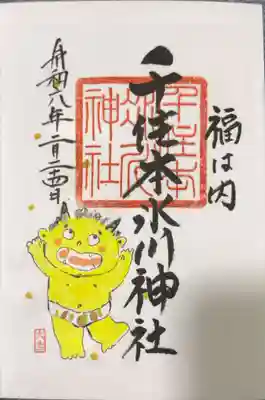 福は内
千住本氷川神社
千住本
氷川
神社
令和八年二月